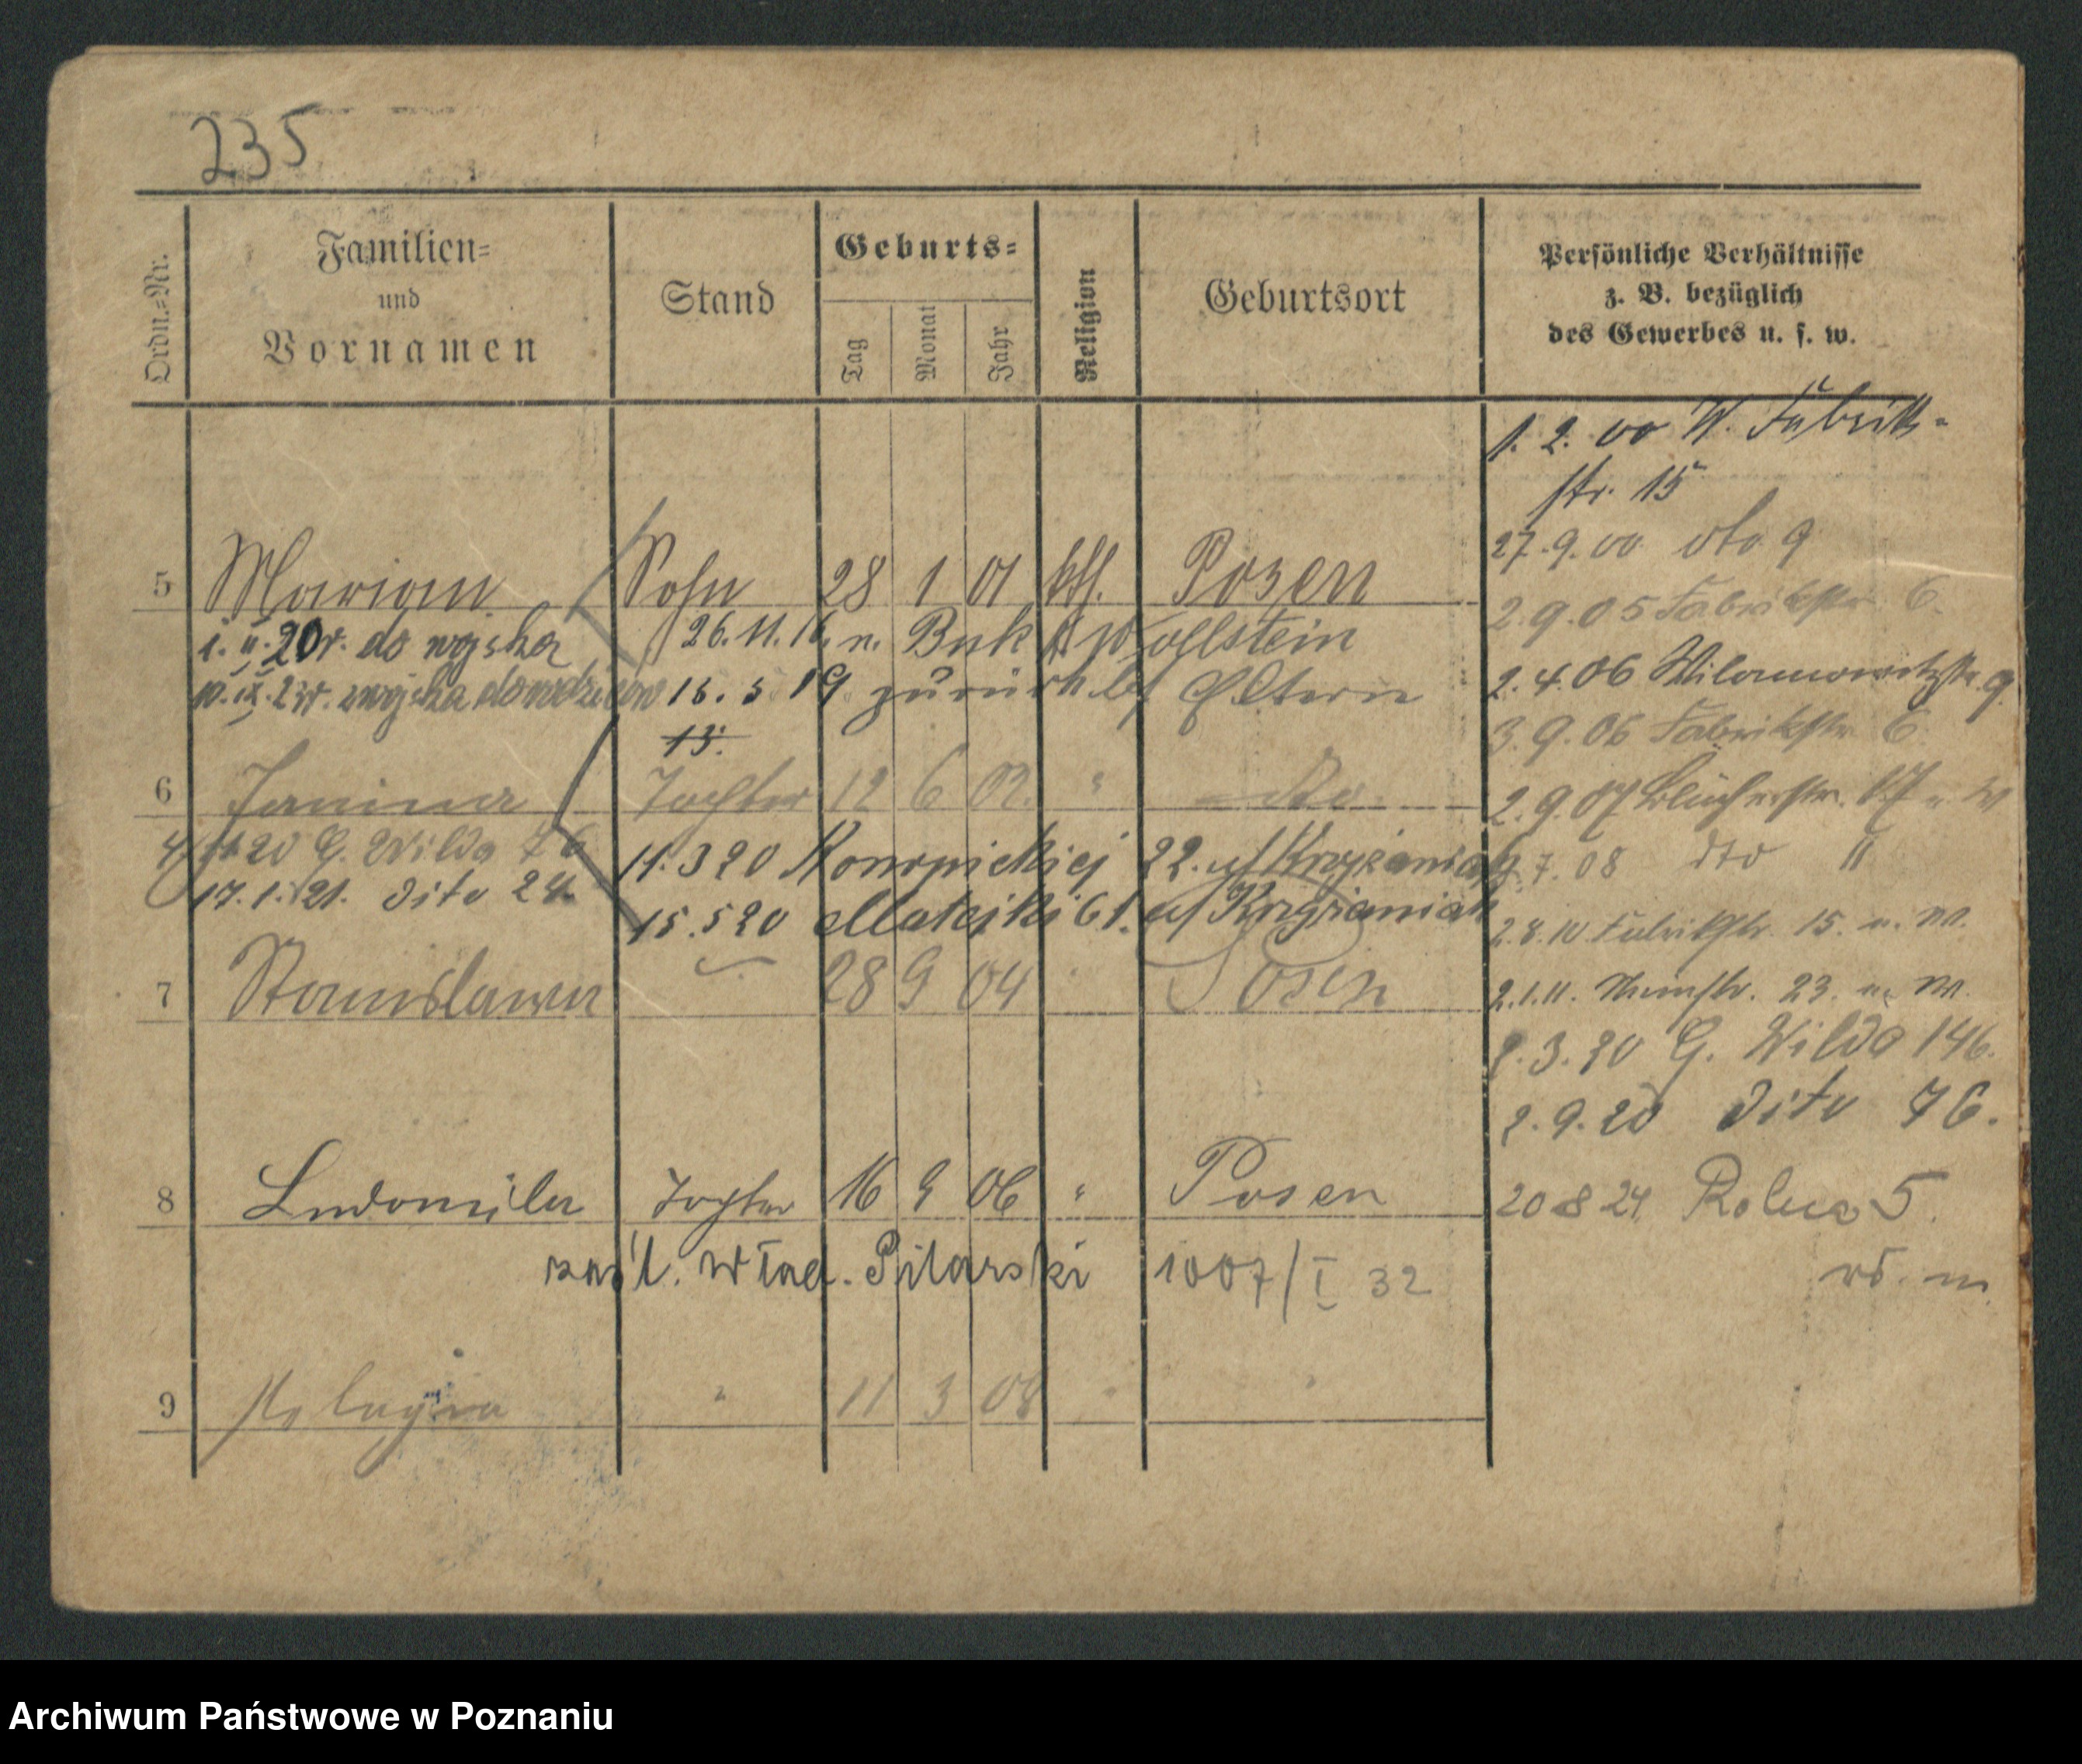 235
Ordn.-Nr.
Familien-
und
Vornamen
Stand
Geburts-
Tag
Monat
Jahr
Religion
Geburtsort
Persönliche Verhältnisse
z. B. bezüglich
des Gewerbes u. s. w.
1. 2. 00 W. Fabrik-
str. 15
27. 9. 00 dto 9
5 Marian Sohn 28 1 01 kth. Posen
2.9.05 Fabrikstr 6.
1. II. 20 r. do wojska
26. 11. 16. n. Buk Kr Wollstein
2.4.06 Wilamowitzstr. 9
10. IX. 23r. z wojska do
16. 5 19 zurück bf Eltern
13.
3.9.06 Fabrikstr 6
6 Janina Tochter 12 6 02. " dto
2.9.07 Blücherstr. W
20 G. Wilda 76
11. 3 20 Konopnickiej 22. uf Krzyżaniak
7. 08 dto "
17. 1. 21. dito 24.
15. 5 20 Matejki 61. uf Krzyżaniak
2.8.10 Fabrikstr. 15. u. W.
7 Stanislawa 28 9 04 Posen
2.1.11. 23. u. W.
2. 3. 20 G. Wilda 146.
2. 9. 20 dito 76.
8 Ludomila Tochter 16 9 06 " Posen
20 8 24. Rolna 5.
Wład. Pilarski 1007/I 32
9 Pelagia " 11 3 08 "
Archiwum Państwowe w Poznaniu